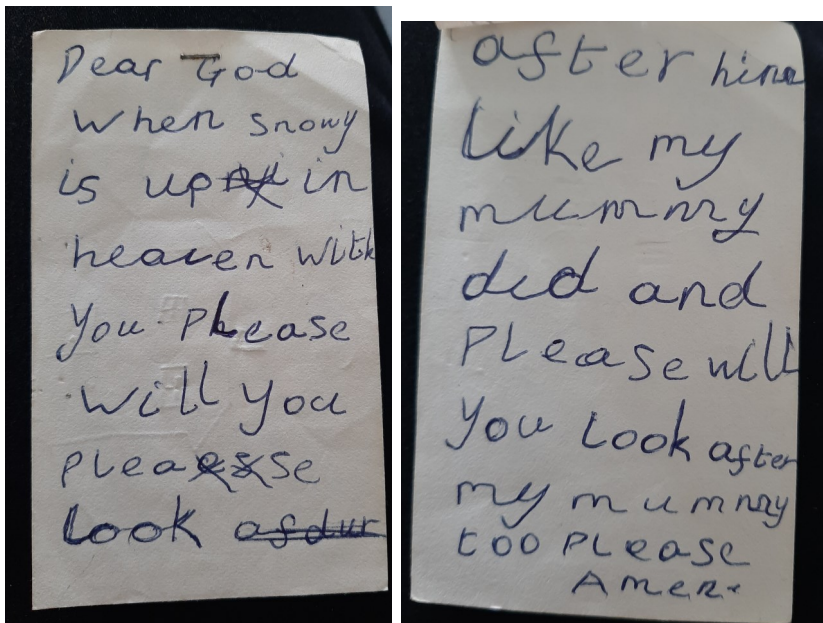 Dear God
When Snowy
is up in
heaven with
you please
will you
please
Look
after him
like my
mummy
did and
PLease will
you Look after
my mummy
too PLease
Amen